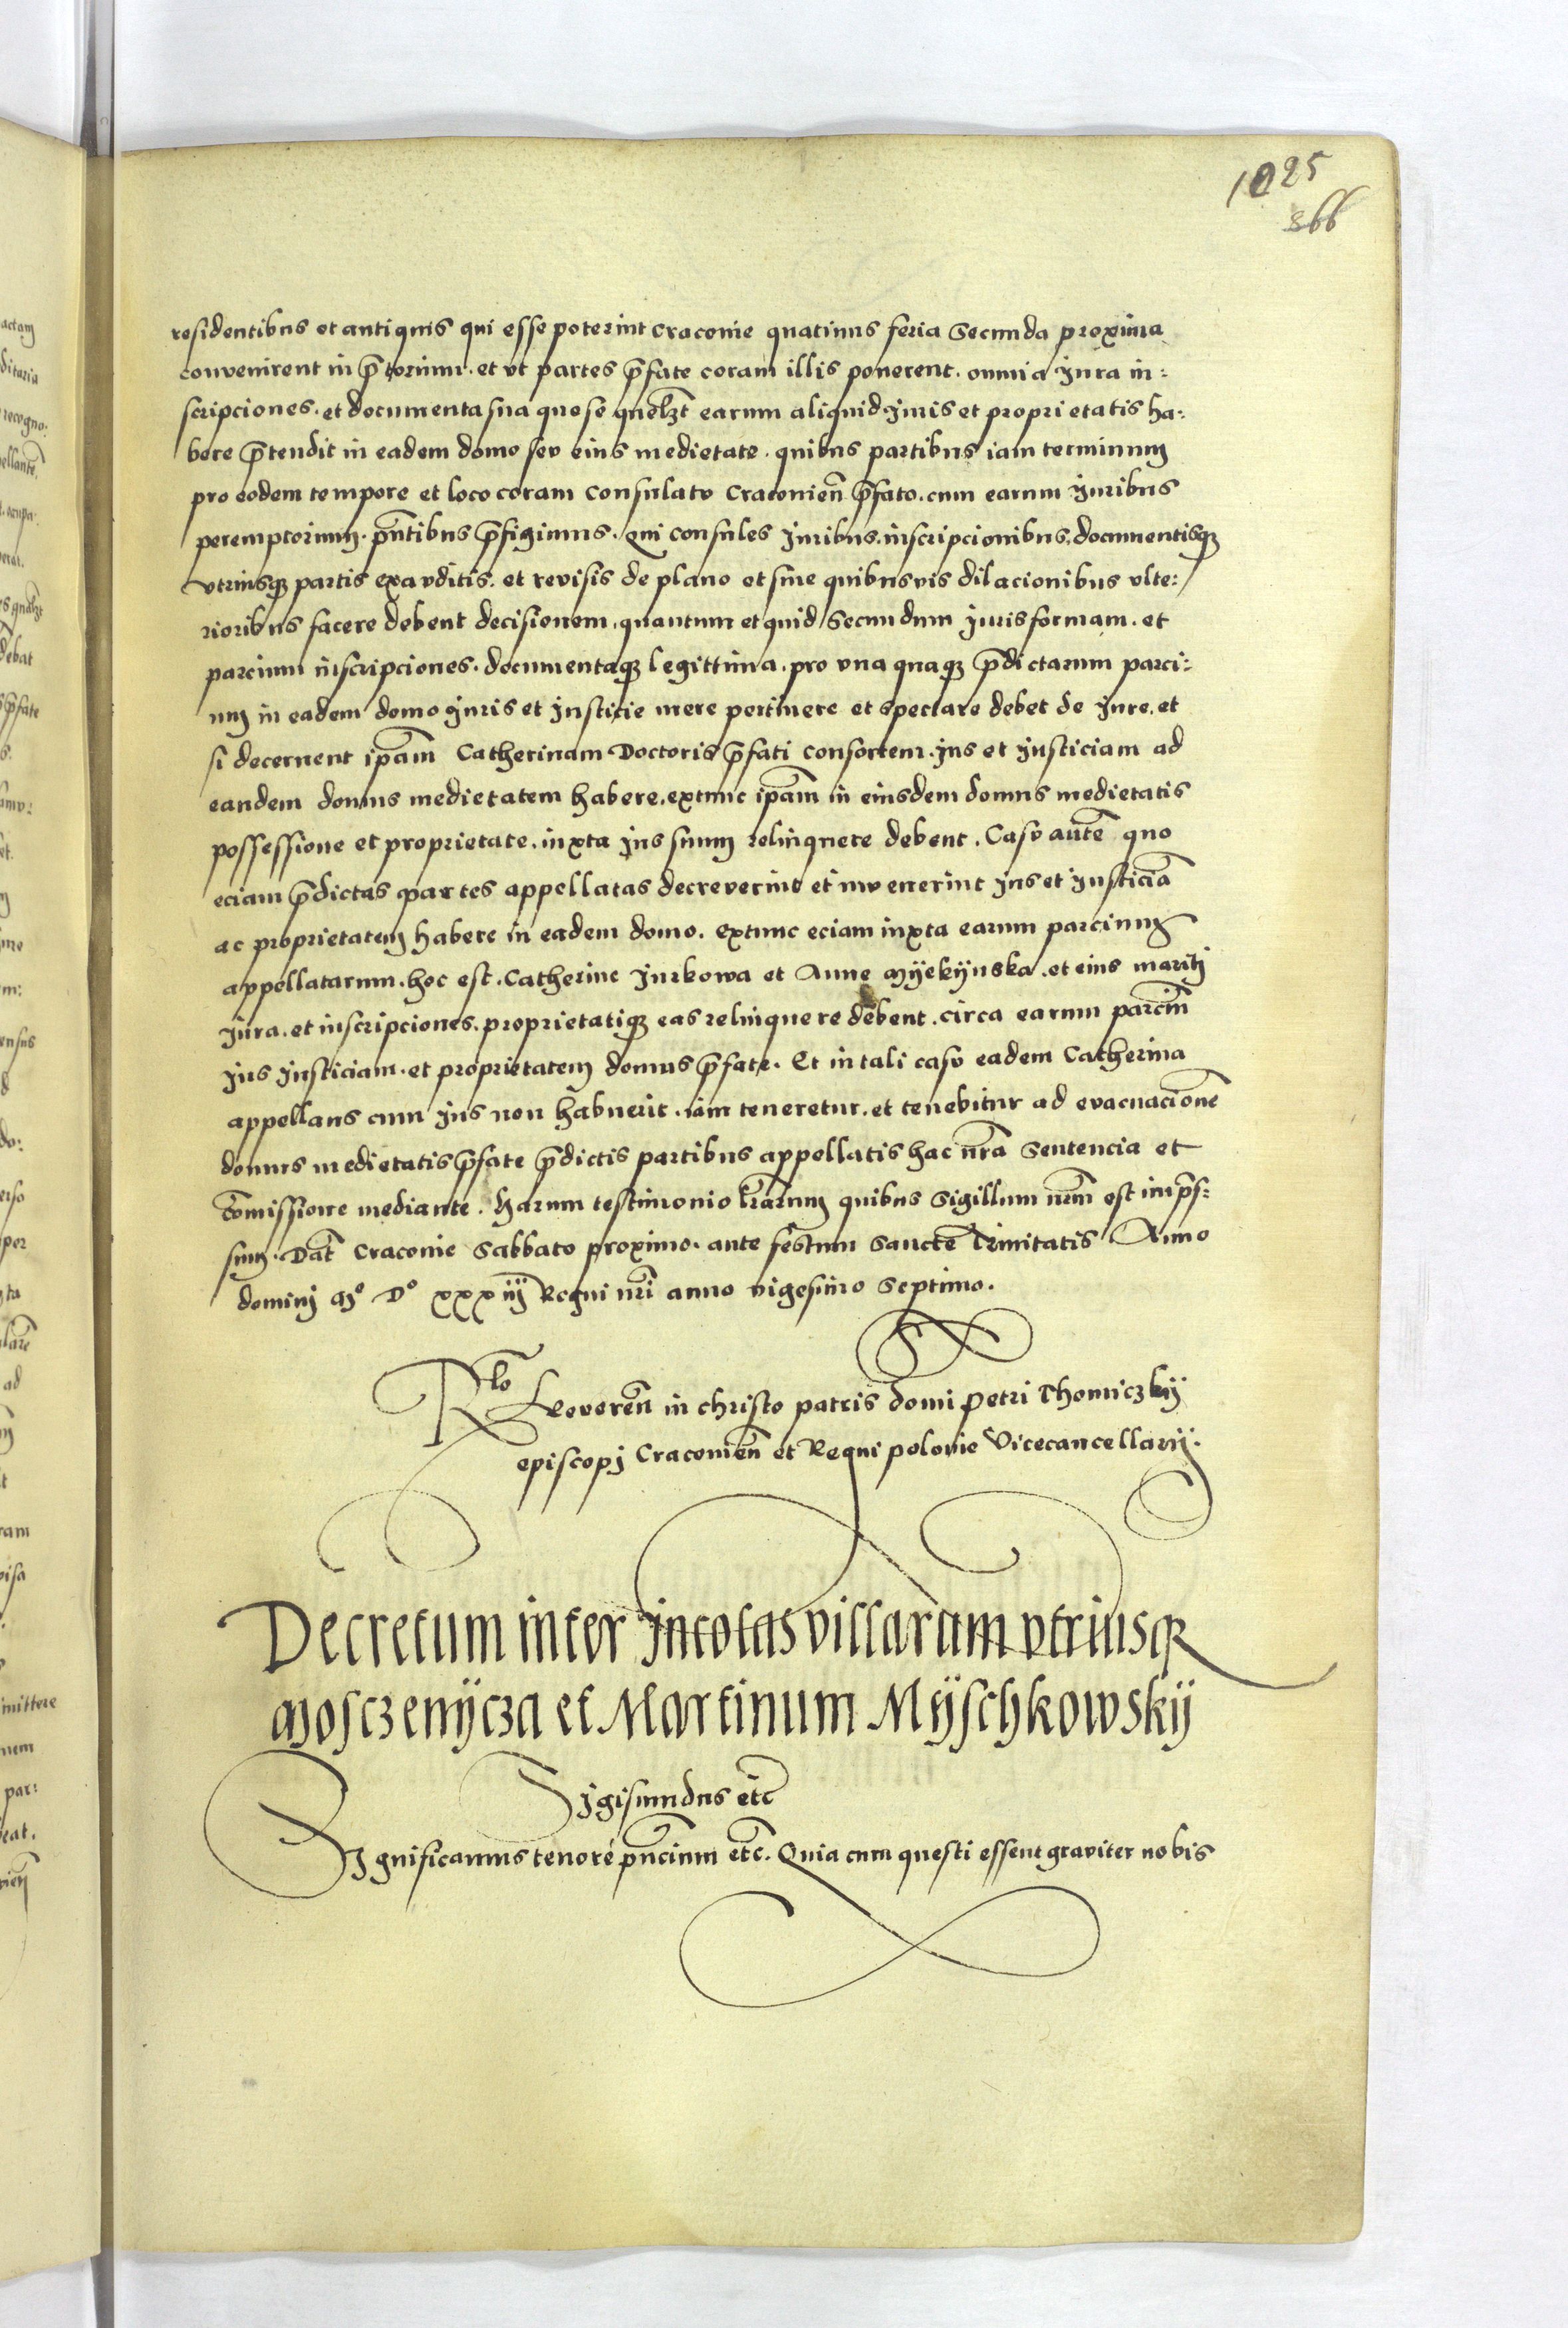 1025
366
residentibus et antiquis qui esse poterint Craconie quatinus feria Secunda proxima
convenirent in p̄torium. et ut partes p̄fate coram illis ponerent. omnia Jura in:
scripciones. et documenta sua quo se quelꝫt earum aliquid. Juris et proprietatis ha:
bere p̄tendit in eadem domo seu eius medietate. quibus partibus iam terminum
pro eodem tempore et loco coram Consulatu Craconien̄ p̄fato. cum earum Juribus
peremptorium. pn̄tibus p̄figimus. Qui consules Juribus. inscripcionibus. documentisqꝫ
utriusqꝫ partis exauditis. et revisis de plano et sine quibusvis dilacionibus ulte:
rioribus facere debent decisionem. quantum et quid secundum Juris formam. et
parcium inscripciones. documentaqꝫ legittima. pro una quaqꝫ p̄dictarum parci:
um in eadem domo Juris et Justicie mere pertinere et spectare debet de Jure. et
si decernent ip̄am Catherinam Doctoris p̄fati consortem. Jus et Justiciam ad
eandem domus medietatem habere. extunc ip̄am in eiusdem domus medietatis
possessione et proprietate. iuxta Jus suum relinquere debent. Casu autē quo
eciam p̄dictas partes appellatas decreverint et invenerint Jus et Justiciā
ac proprietatem habere in eadem domo. extunc eciam iuxta earum parcium
appellatarum. hoc est. Catherine Jurkowa et Anne Myekÿnska. et eius mariti
Jura. et inscripciones. proprietatiqꝫ eas relinquere debent. circa earum parciū
Jus Justiciam. et proprietatem domus p̄fate. Et in tali casu eadem Catherina
appellans cum Jus non habuerit. iam teneretur. et tenebitur ad evacuacionē
domus medietatis p̄fate p̄dictis partibus appellatis hac nr̄a Sentencia et
cōmissione mediante. Harum testimonio lr̄arum quibus Sigillum nr̄m est imp̄s:
sum. Dat̄ Craconie Sabbato proximo. ante festum Sancte Trinitatis Anno
domini Mº Dº xxxiii Regni nr̄i anno vigesimo Septimo.
Rlo Reveren̄ in christo patris domi Petri Thomiczkÿ
episcopi Craconien̄ et Regni polonie Vicecancellarÿ.
Decretum inter Incolas villarum utriusqꝫ
Mosczenÿcza et Martinum Mÿschkowskÿ
Sigismundus etc̄
Significamus tenore pn̄cium etc̄. Quia cum questi essent graviter nobis